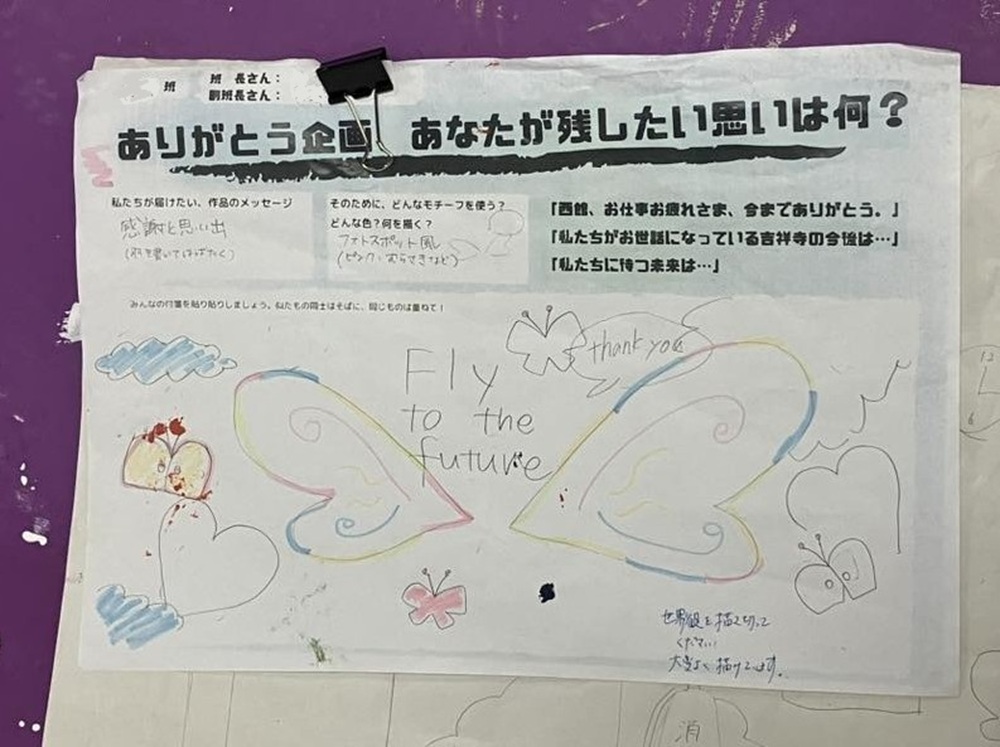 班
班 長さん：
副班長さん：
ありがとう企画 あなたが残したい思いは何？
私たちが届けたい、作品のメッセージ
感謝と思い出
(羽を書いてはばたく)
そのために、どんなモチーフを使う？
どんな色？何を描く？
フォトスポット風
(ピンク・むらさきなど)
「西館、お仕事お疲れさま、今までありがとう。」
「私たちがお世話になっている吉祥寺の今後は…」
「私たちに待つ未来は…」
みんなの付箋を貼り貼りしましょう。似たもの同士はそばに、同じものは重ねて！
thank you
Fly
to the
future
世界観を描き切って
ください
大きく描けてます。
12
6
消